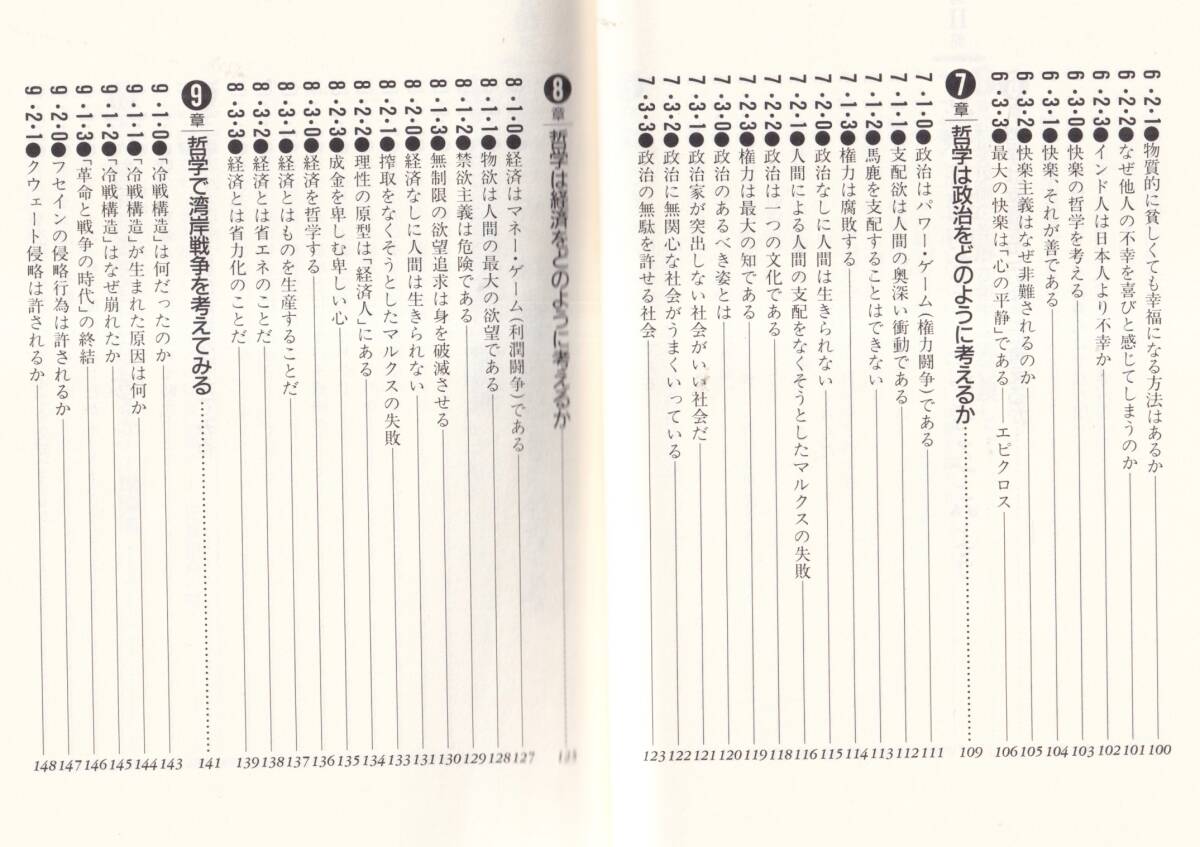 6・2・1●物質的に貧しくても幸福になる方法はあるか 100
6・2・2●なぜ他人の不幸を喜びと感じてしまうのか 101
6・2・3●インド人は日本人より不幸か 102
6・3・0●快楽の哲学を考える 103
6・3・1●快楽、それが善である 104
6・3・2●快楽主義はなぜ非難されるのか 105
6・3・3●最大の快楽は「心の平静」である――エピクロス 106
7章 哲学は政治をどのように考えるか 109
7・1・0●政治はパワー・ゲーム(権力闘争)である 111
7・1・1●支配欲は人間の奥深い衝動である 112
7・1・2●馬鹿を支配することはできない 113
7・1・3●権力は腐敗する 114
7・2・0●政治なしに人間は生きられない 115
7・2・1●人間による人間の支配をなくそうとしたマルクスの失敗 116
7・2・2●政治は一つの文化である 118
7・2・3●権力は最大の知である 119
7・3・0●政治のあるべき姿とは 120
7・3・1●政治家が突出しない社会がいい社会だ 121
7・3・2●政治に無関心な社会がうまくいっている 122
7・3・3●政治の無駄を許せる社会 123
8章 哲学は経済をどのように考えるか
8・1・0●経済はマネー・ゲーム(利潤闘争)である 127
8・1・1●物欲は人間の最大の欲望である 128
8・1・2●禁欲主義は危険である 129
8・1・3●無制限の欲望追求は身を破滅させる 130
8・2・0●経済なしに人間は生きられない 131
8・2・1●搾取をなくそうとしたマルクスの失敗 133
8・2・2●理性の原型は「経済人」にある 134
8・2・3●成金を卑しむ卑しい心 135
8・3・0●経済を哲学する 136
8・3・1●経済とはものを生産することだ 137
8・3・2●経済とは省エネのことだ 138
8・3・3●経済とは省力化のことだ 139
9章 哲学で湾岸戦争を考えてみる 141
9・1・0●「冷戦構造」は何だったのか 143
9・1・1●「冷戦構造」が生まれた原因は何か 144
9・1・2●「冷戦構造」はなぜ崩れたか 145
9・1・3●「革命と戦争の時代」の終結 146
9・2・0●フセインの侵略行為は許されるか 147
9・2・1●クウェート侵略は許されるか 148